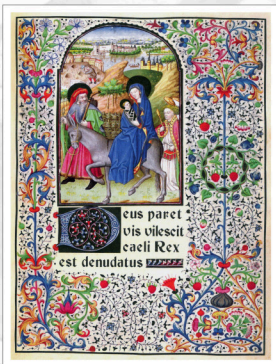 Deus paret
vis vilescit
caeli Rex
est denudatus